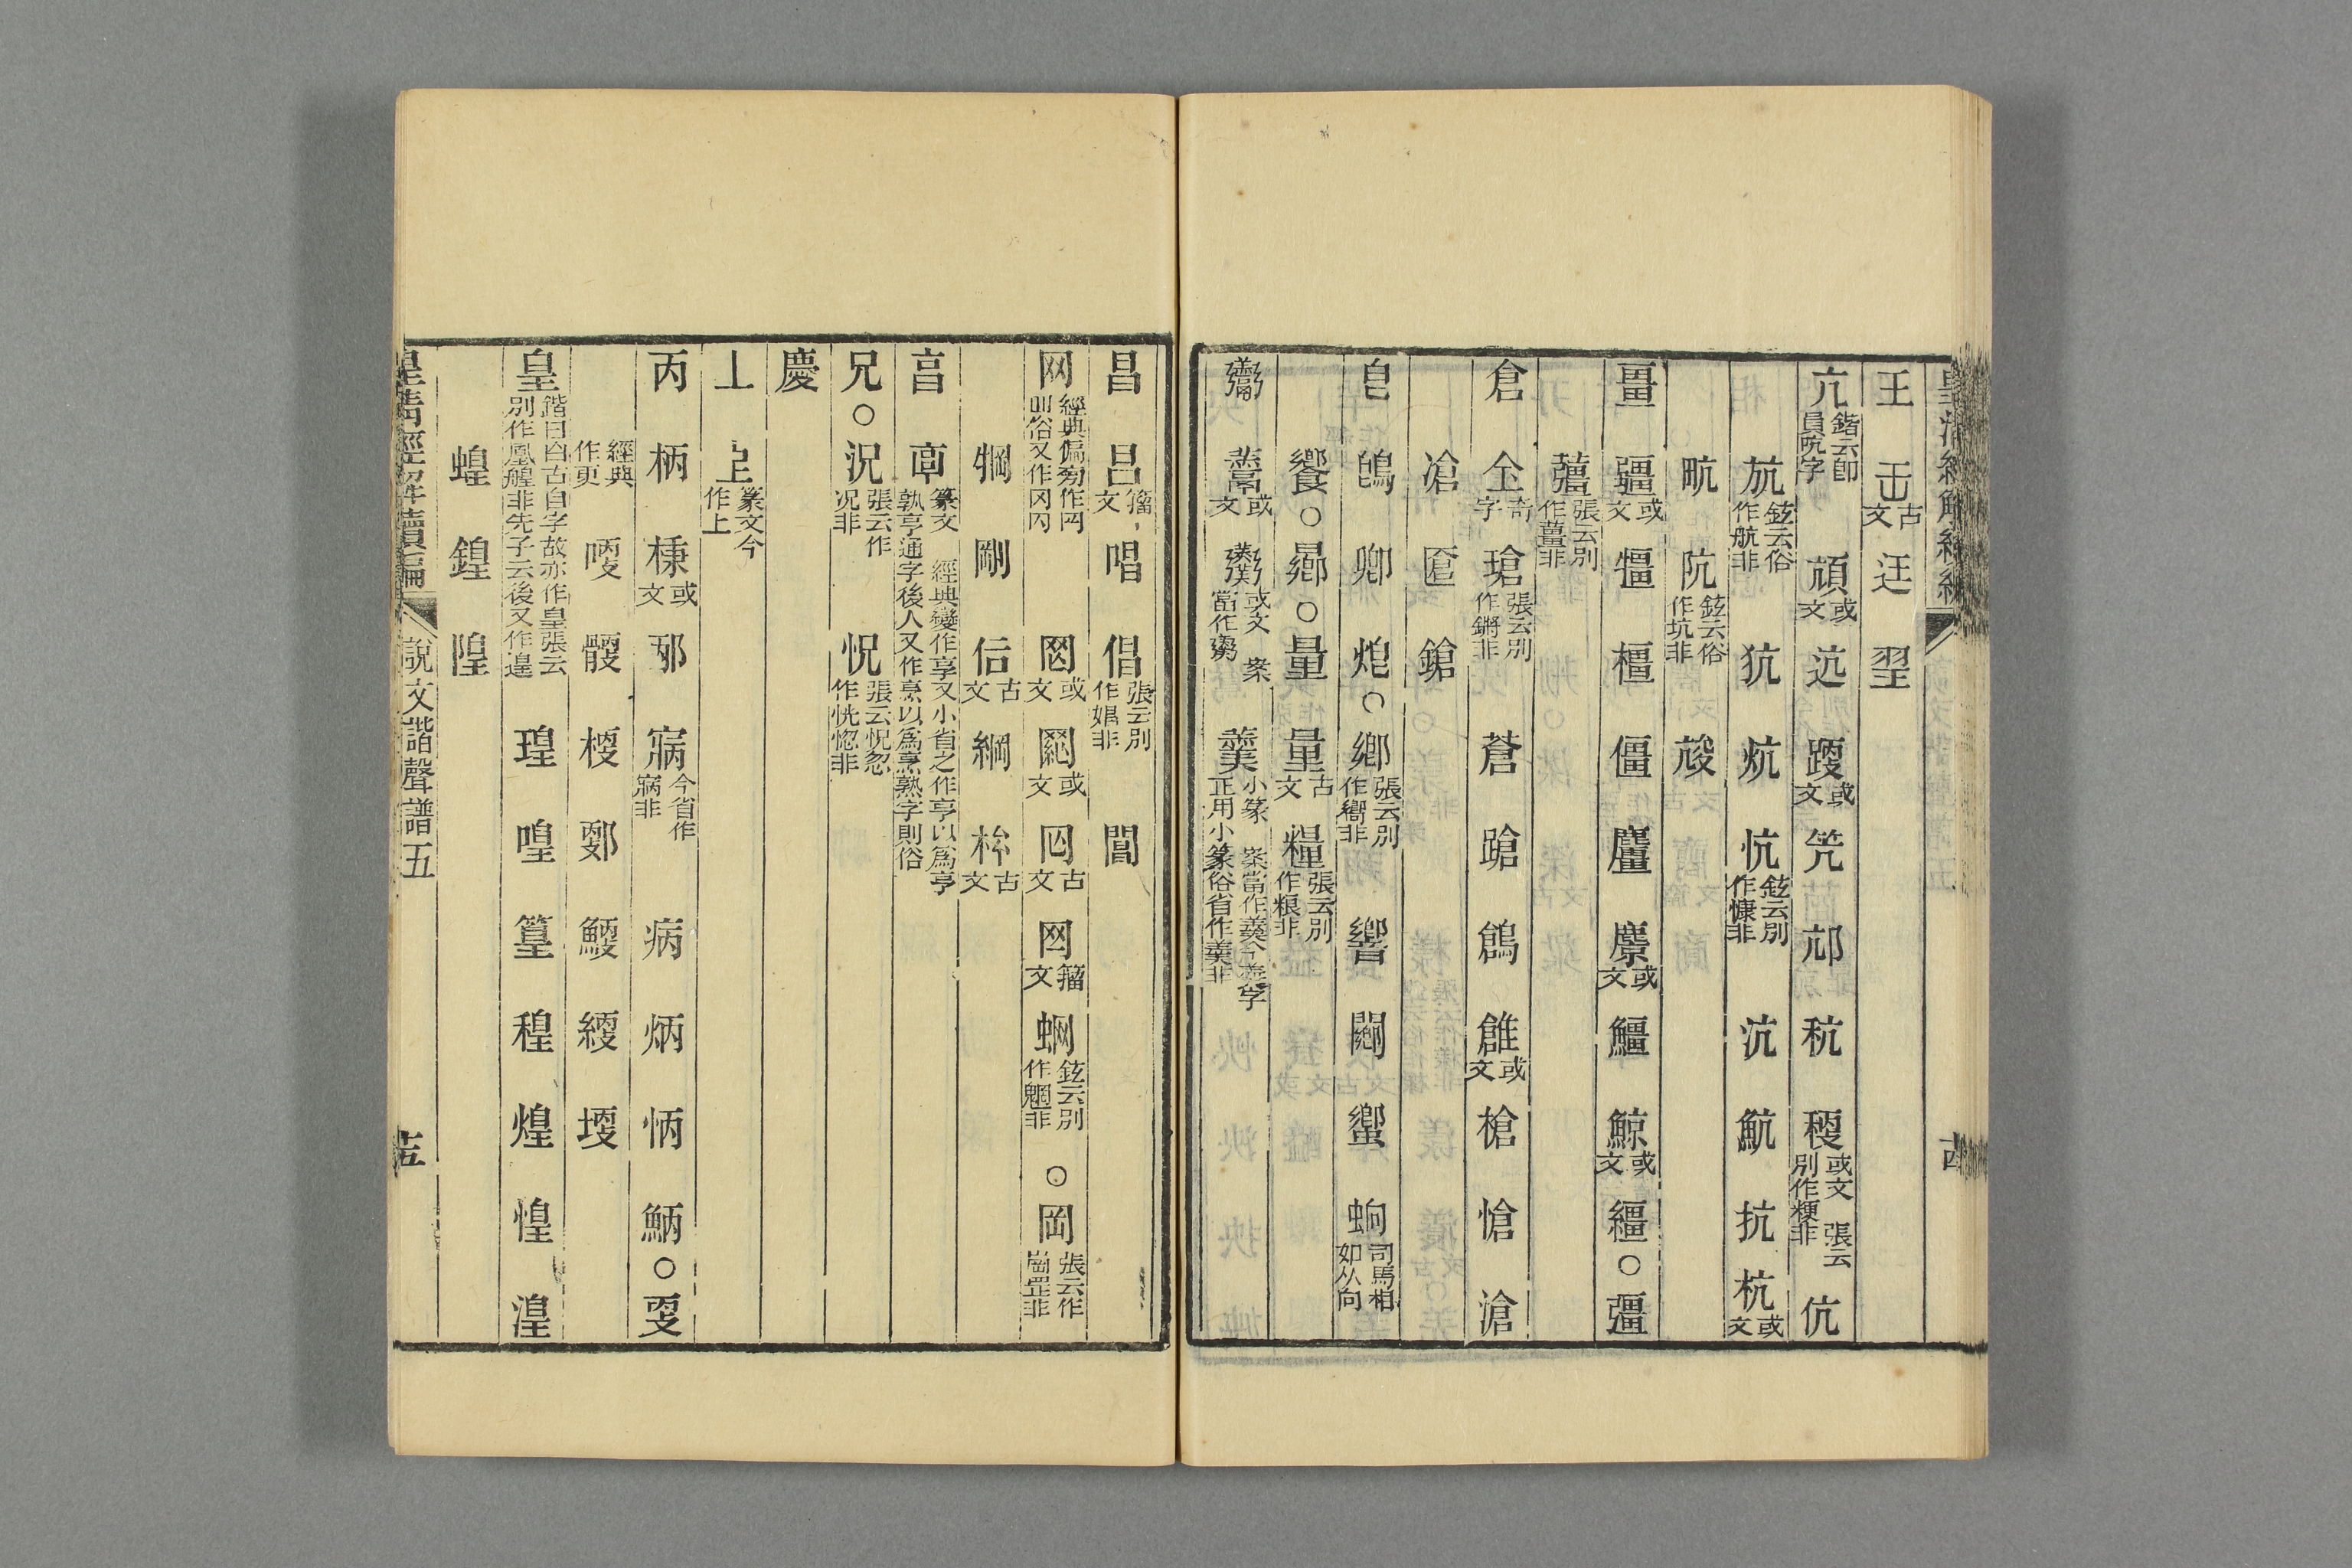 王 𤣪古文 迋 翌
亢鍇云卽員阬字 頏或文 迒 䟘或文 笐 邟 秔 稉或文 張云別作粳非 伉
斻鉉云俗作航非 犺 炕 忼鉉云別作慷非 沆 魧 抗 杭或文
畍 阬鉉云俗作坑非 㼹
畺 疆或文 犅 橿 僵 麠 麖或文 鱷 鯨或文 繮○彊
蘁張云別作薑非
倉 仺奇字 瑲張云別作鏘非 蒼 蹌 鶬 䧿或文 槍 愴 滄
凔 匫 鎗
皀 鴖 卿 㷡○鄉張云別作嚮非 響 闀 蠁 蚼司馬相如从向
饗○曏○量 𨤥古文 糧張云別作粮非
䰞 𩱁或文 𩱋或文 當作𩱧 羹小篆 𥹥當作羹今羹字正用小篆俗省作羹非
昌 𣅊籀文 唱 倡張云別作娼非 閶
网經典偏旁作罓𦉪俗又作冈㓁 𦉾或文 網或文 𦉸古文 𦉲籀文 蝄鉉云別作魍非 ○岡張云作崗罡非
犅 剛 𠇙古文 綱 𣙺古文
亯 𦎧篆文 經典變作享又小省之作亨以爲亨孰亨通字後人又作烹以爲烹熟字則俗
兄○況張云作况非 怳張云怳忽作恍惚非
慶
丄 上篆文今作上
丙 柄 棅或文 邴 㝱今省作寎非 病 炳 怲 鮩○㪅
經典作更 哽 骾 梗 郠 鯁 綆 埂
皇鍇曰自古自字故亦作皇張云別作凰艎非先子云後又作遑 瑝 喤 篁 䅣 煌 惶 湟
蝗 鍠 隍
皇清經解續編 說文諧聲譜五 十五